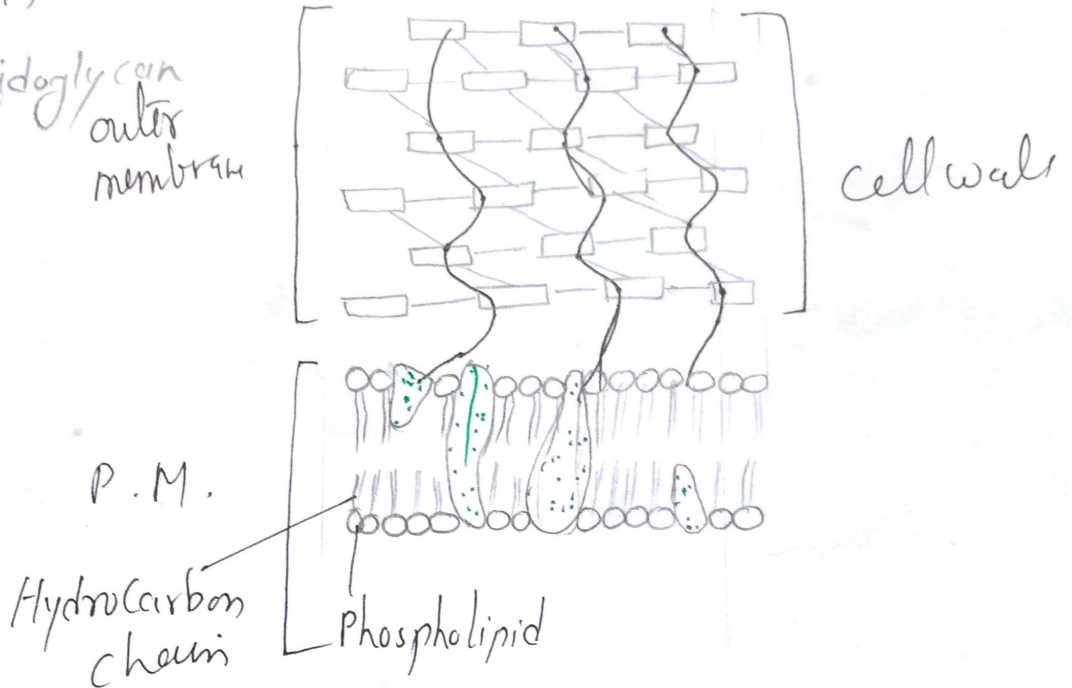 idoglycan
outer
membrane
Cell wall
P.M.
Hydrocarbon
chain
Phospholipid